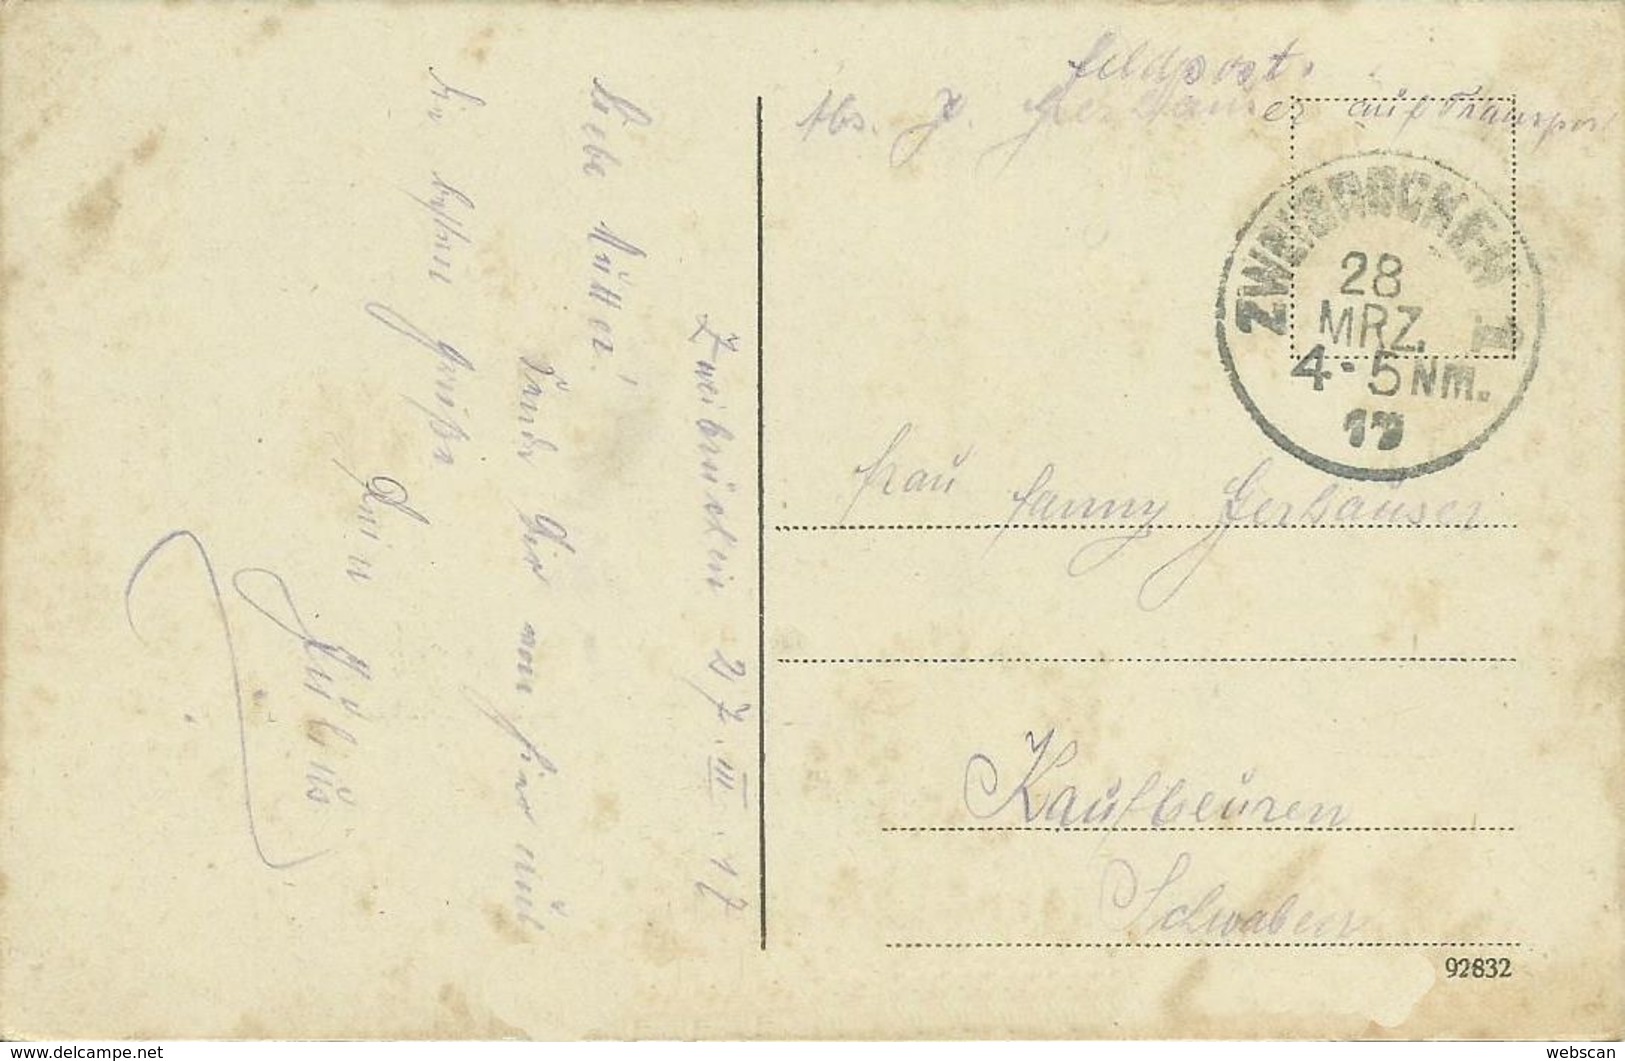 Feldpost.
Abs. J. Gerhauser auf Transport
ZWEIBRÜCKEN 1
28
MRZ.
4-5 NM.
17
Frau Fanny Gerhauser
Kaufbeuren
Schwaben
92832
Zweibrücken 27.III.17
Liebe Mutter!
Sende Dir von hier aus
die besten Grüße
Dein
Julius
www.delcampe.net
webscan